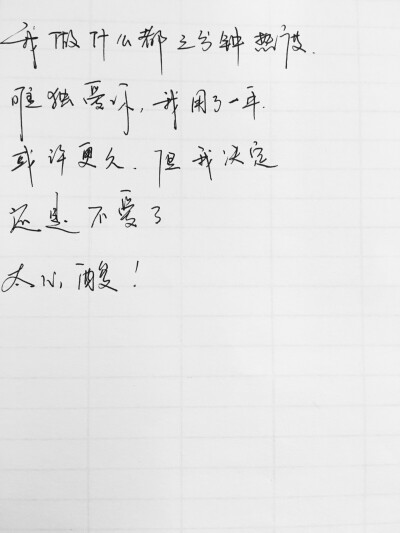 我做什么都三分钟热度.
唯独爱你,我用了一年.
或许更久.但我决定
还是不爱了
太心酸!